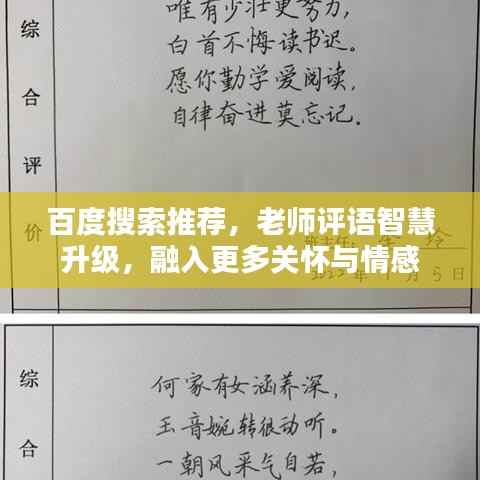 综
合
评
价
唯有少壮更努力，
白首不悔读书迟。
愿你勤学爱阅读，
自律奋进莫忘记。
百度搜索推荐，老师评语智慧
升级，融入更多关怀与情感
玲
月5日
综
合
何家有女涵养深，
玉音婉转很动听。
一朝风采气自若，